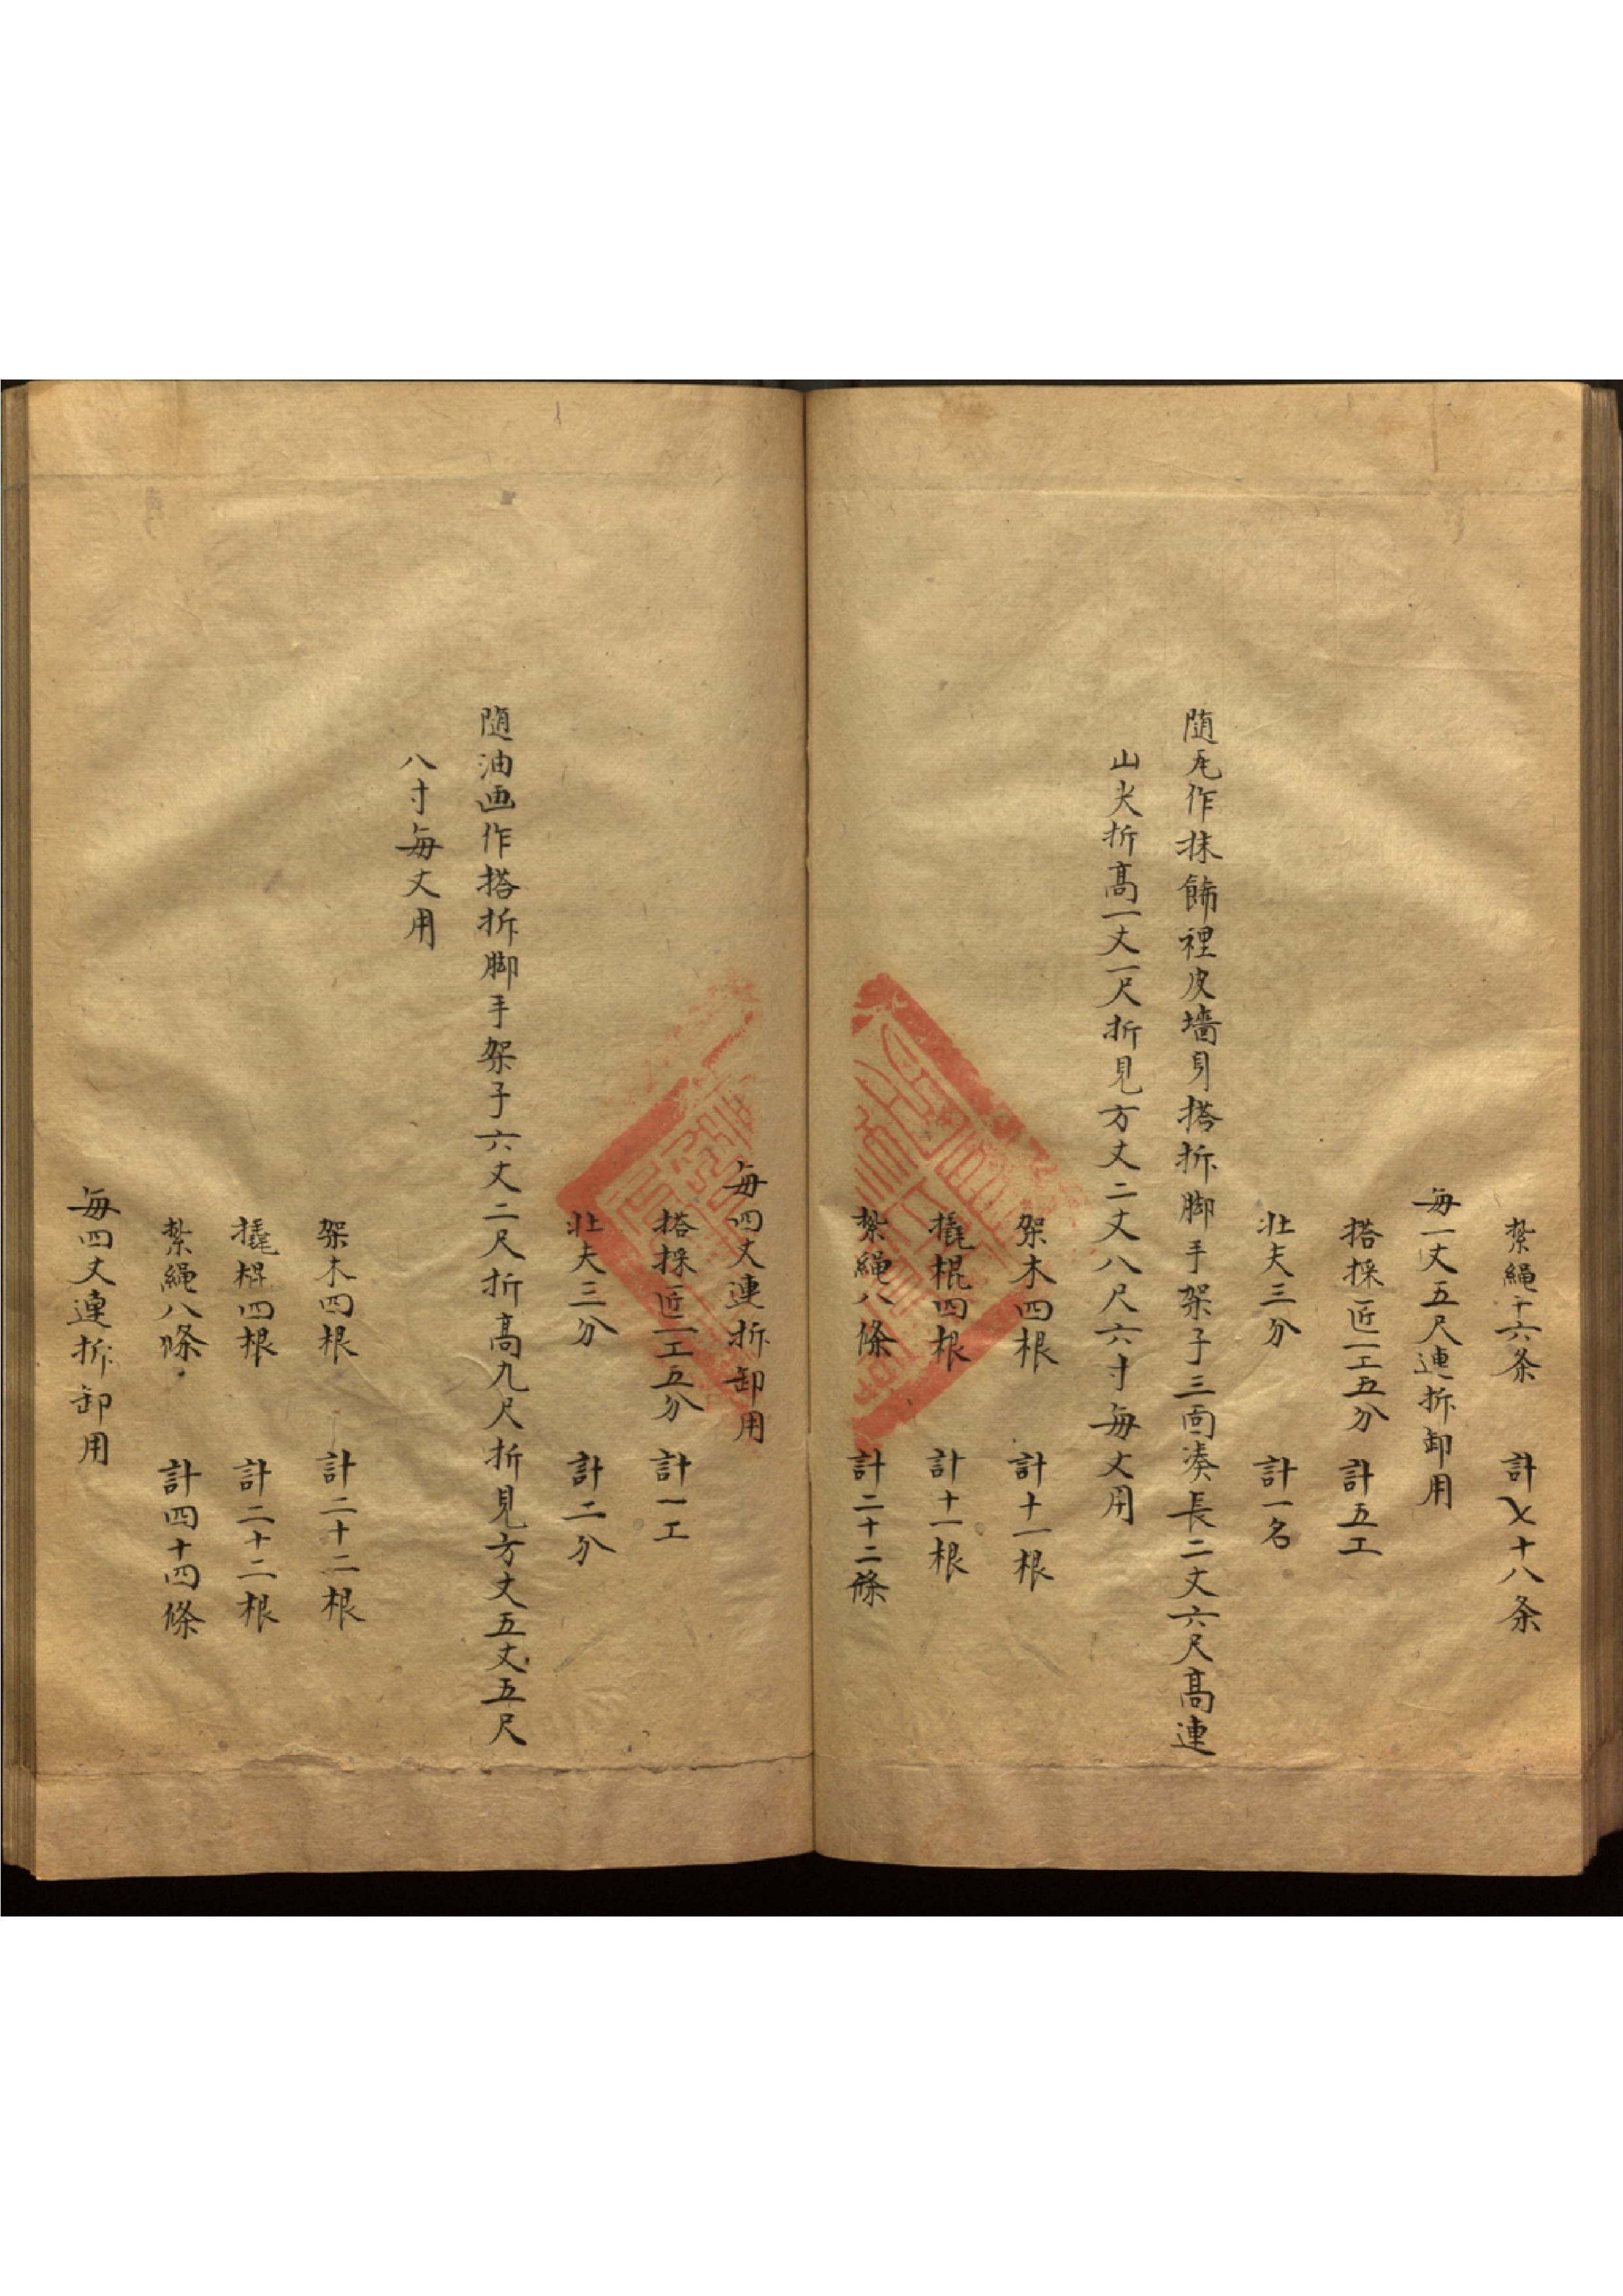 紥繩十六条　計七十八条
每一丈五尺連拆卸用
搭採匠一工五分　計五工
壮夫三分　計一名
随瓦作抹飾裡皮墻身搭拆脚手架子三面湊長二丈六尺高連
山尖折高一丈一尺折見方丈二丈八尺六寸每丈用
架木四根　計十一根
撬棍四根　計十一根
紥繩八條　計二十二條
每四丈連拆卸用
搭採匠一工五分　計一工
壮夫三分　計二分
随油画作搭拆脚手架子六丈二尺折高九尺折見方丈五丈五尺
八寸每丈用
架木四根　計二十二根
撬棍四根　計二十二根
紥繩八條　計四十四條
每四丈連拆卸用